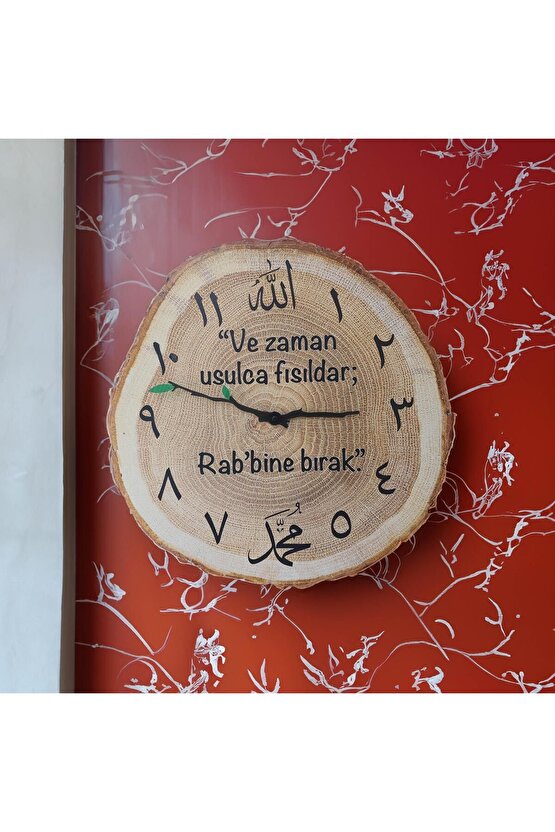 الله
١١
١
“Ve zaman
١٠
٢
usulca fısıldar;
٩
٣
Rab’bine bırak.”
٨
٤
٧
٥
محمد